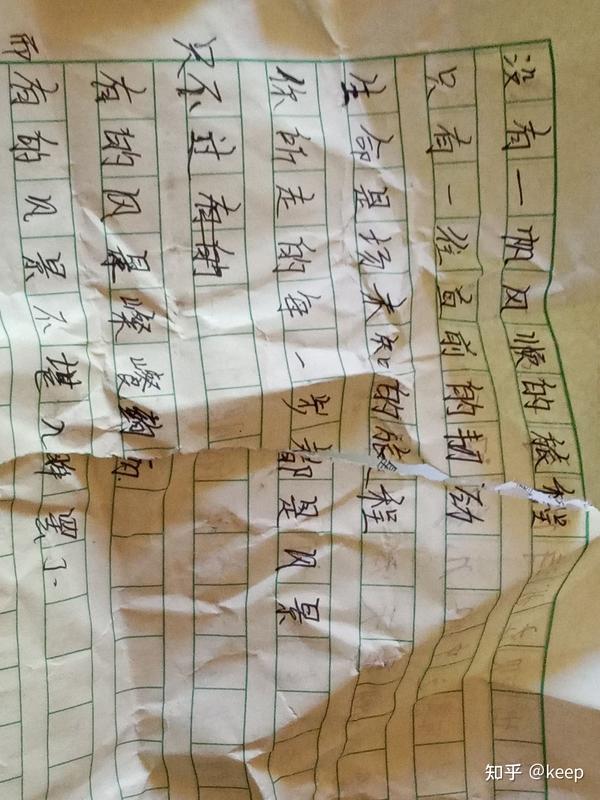 没有一帆风顺的旅程
只有一往直前的韧劲
生命是场未知的旅程
你所走的每一步都是风景
只不过有的
有的风景
而有的风景不堪入罢了.
知乎 @keep